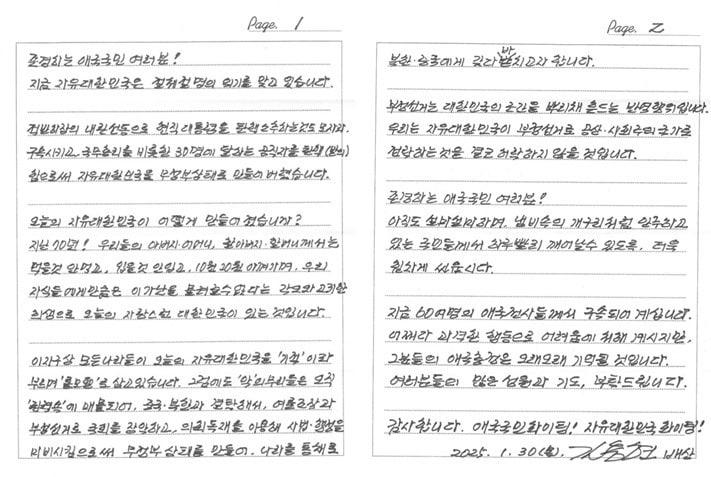 Page. 1
존경하는 애국국민 여러분!
지금 자유대한민국은 절체절명의 위기를 맞고 있습니다.
현직 대통령을 탄핵소추하는것도 모자라,
구속시키고, 국무총리를 비롯한 30명에 달하는 공직자를 탄핵(발의)
함으로써 자유대한민국을 무정부상태로 만들어 버렸습니다.
오늘의 자유대한민국이 어떻게 만들어 졌습니까?
지난 70년! 우리들의 아버지·어머니, 할아버지·할머니께서는
먹을것 안먹고, 입을것 안입고, 10원 20원 아껴가며, 우리
자식들에게만큼은 이 가난을 물려줄수 없다는
희생으로 오늘의 자랑스런 대한민국이 있는 것입니다.
이 지구상 모든나라들이 오늘의 자유대한민국을 '기적'이라
부르며 '롤모델'로 삼고있습니다. 그럼에도 '악'의 무리들은 오직
에 매몰되어, 중국·북한과 결탁해서, 여론조작과
부정선거로 국회를 장악하고, 의회독재를 이용해 사법·행정을
마비시킴으로써 무정부 상태를 만들어, 나라를 통째로
Page. 2
북한·중국에게 갖다 바치고자 합니다.
부정선거는 대한민국의 근간을 뿌리채 흔드는 반역행위입니다.
우리는 자유대한민국이 부정선거로 공산·사회주의 국가로
전락하는 것을 결코 허락하지 않을 것입니다.
존경하는 애국국민 여러분!
아직도 냄비속의 개구리처럼 안주하고
있는 국민들께서 하루빨리 깨어날수 있도록, 더욱
힘차게 싸웁시다.
지금 60여명의 애국전사들께서 구속되어 계십니다.
어쩌다 과격한 행동으로 어려움에 처해 계시지만,
그분들의 애국충정은 오래오래 기억될 것입니다.
여러분들의 많은 성원과 기도, 부탁드립니다.
감사합니다. 애국국민 화이팅! 자유대한민국 화이팅!
2025. 1. 30(목), 김용현 배상